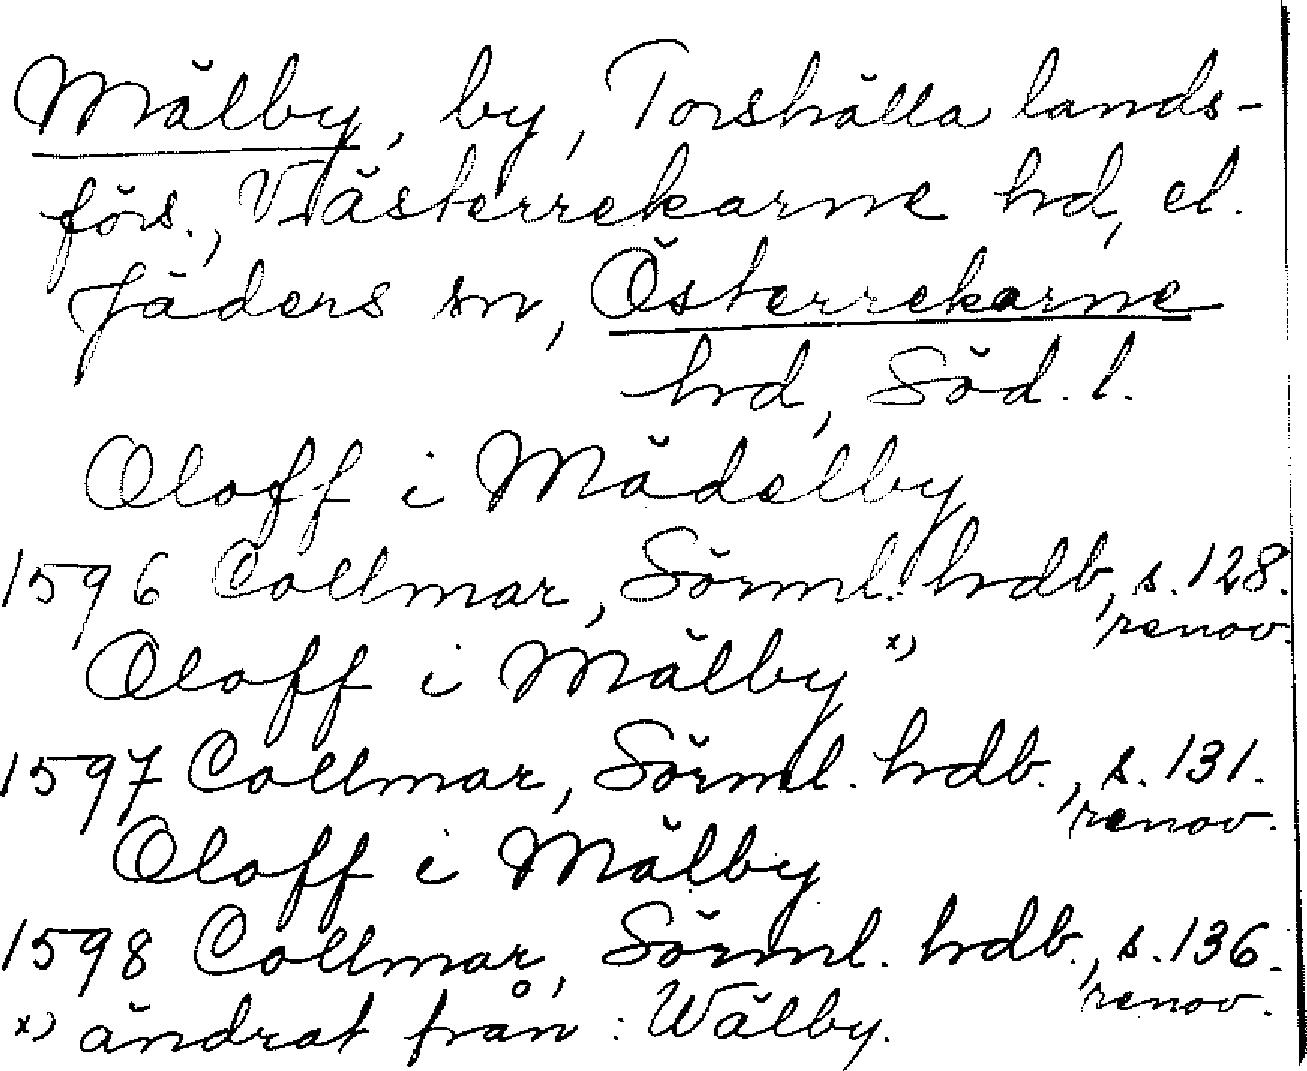 Mälby, by, Torshälla lands-
förs., Västerrekarne hd, el.
Jäders sn, Österrekarne
hd, Söd. l.
Oloff i Mädelby
1596 Collmar, Sörml. hdb, s. 128.
renov.
Oloff i Mälby x)
1597 Collmar, Sörml. hdb., s. 131.
renov.
Oloff i Mälby
1598 Collmar, Sörml. hdb., s. 136.
renov.
x) ändrat från: Wälby.